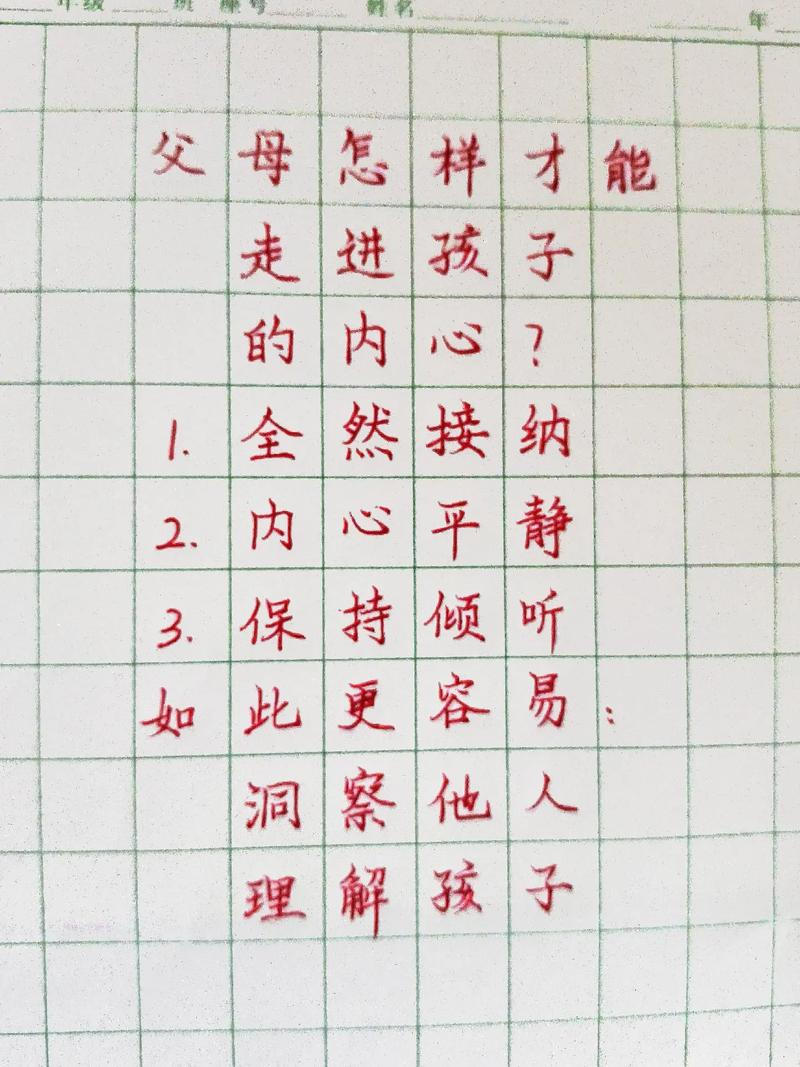 年级 班 座号 姓名 年
父母怎样才能
走进孩子
的内心?
1.全然接纳
2.内心平静
3.保持倾听
如此更容易:
洞察他人
理解孩子